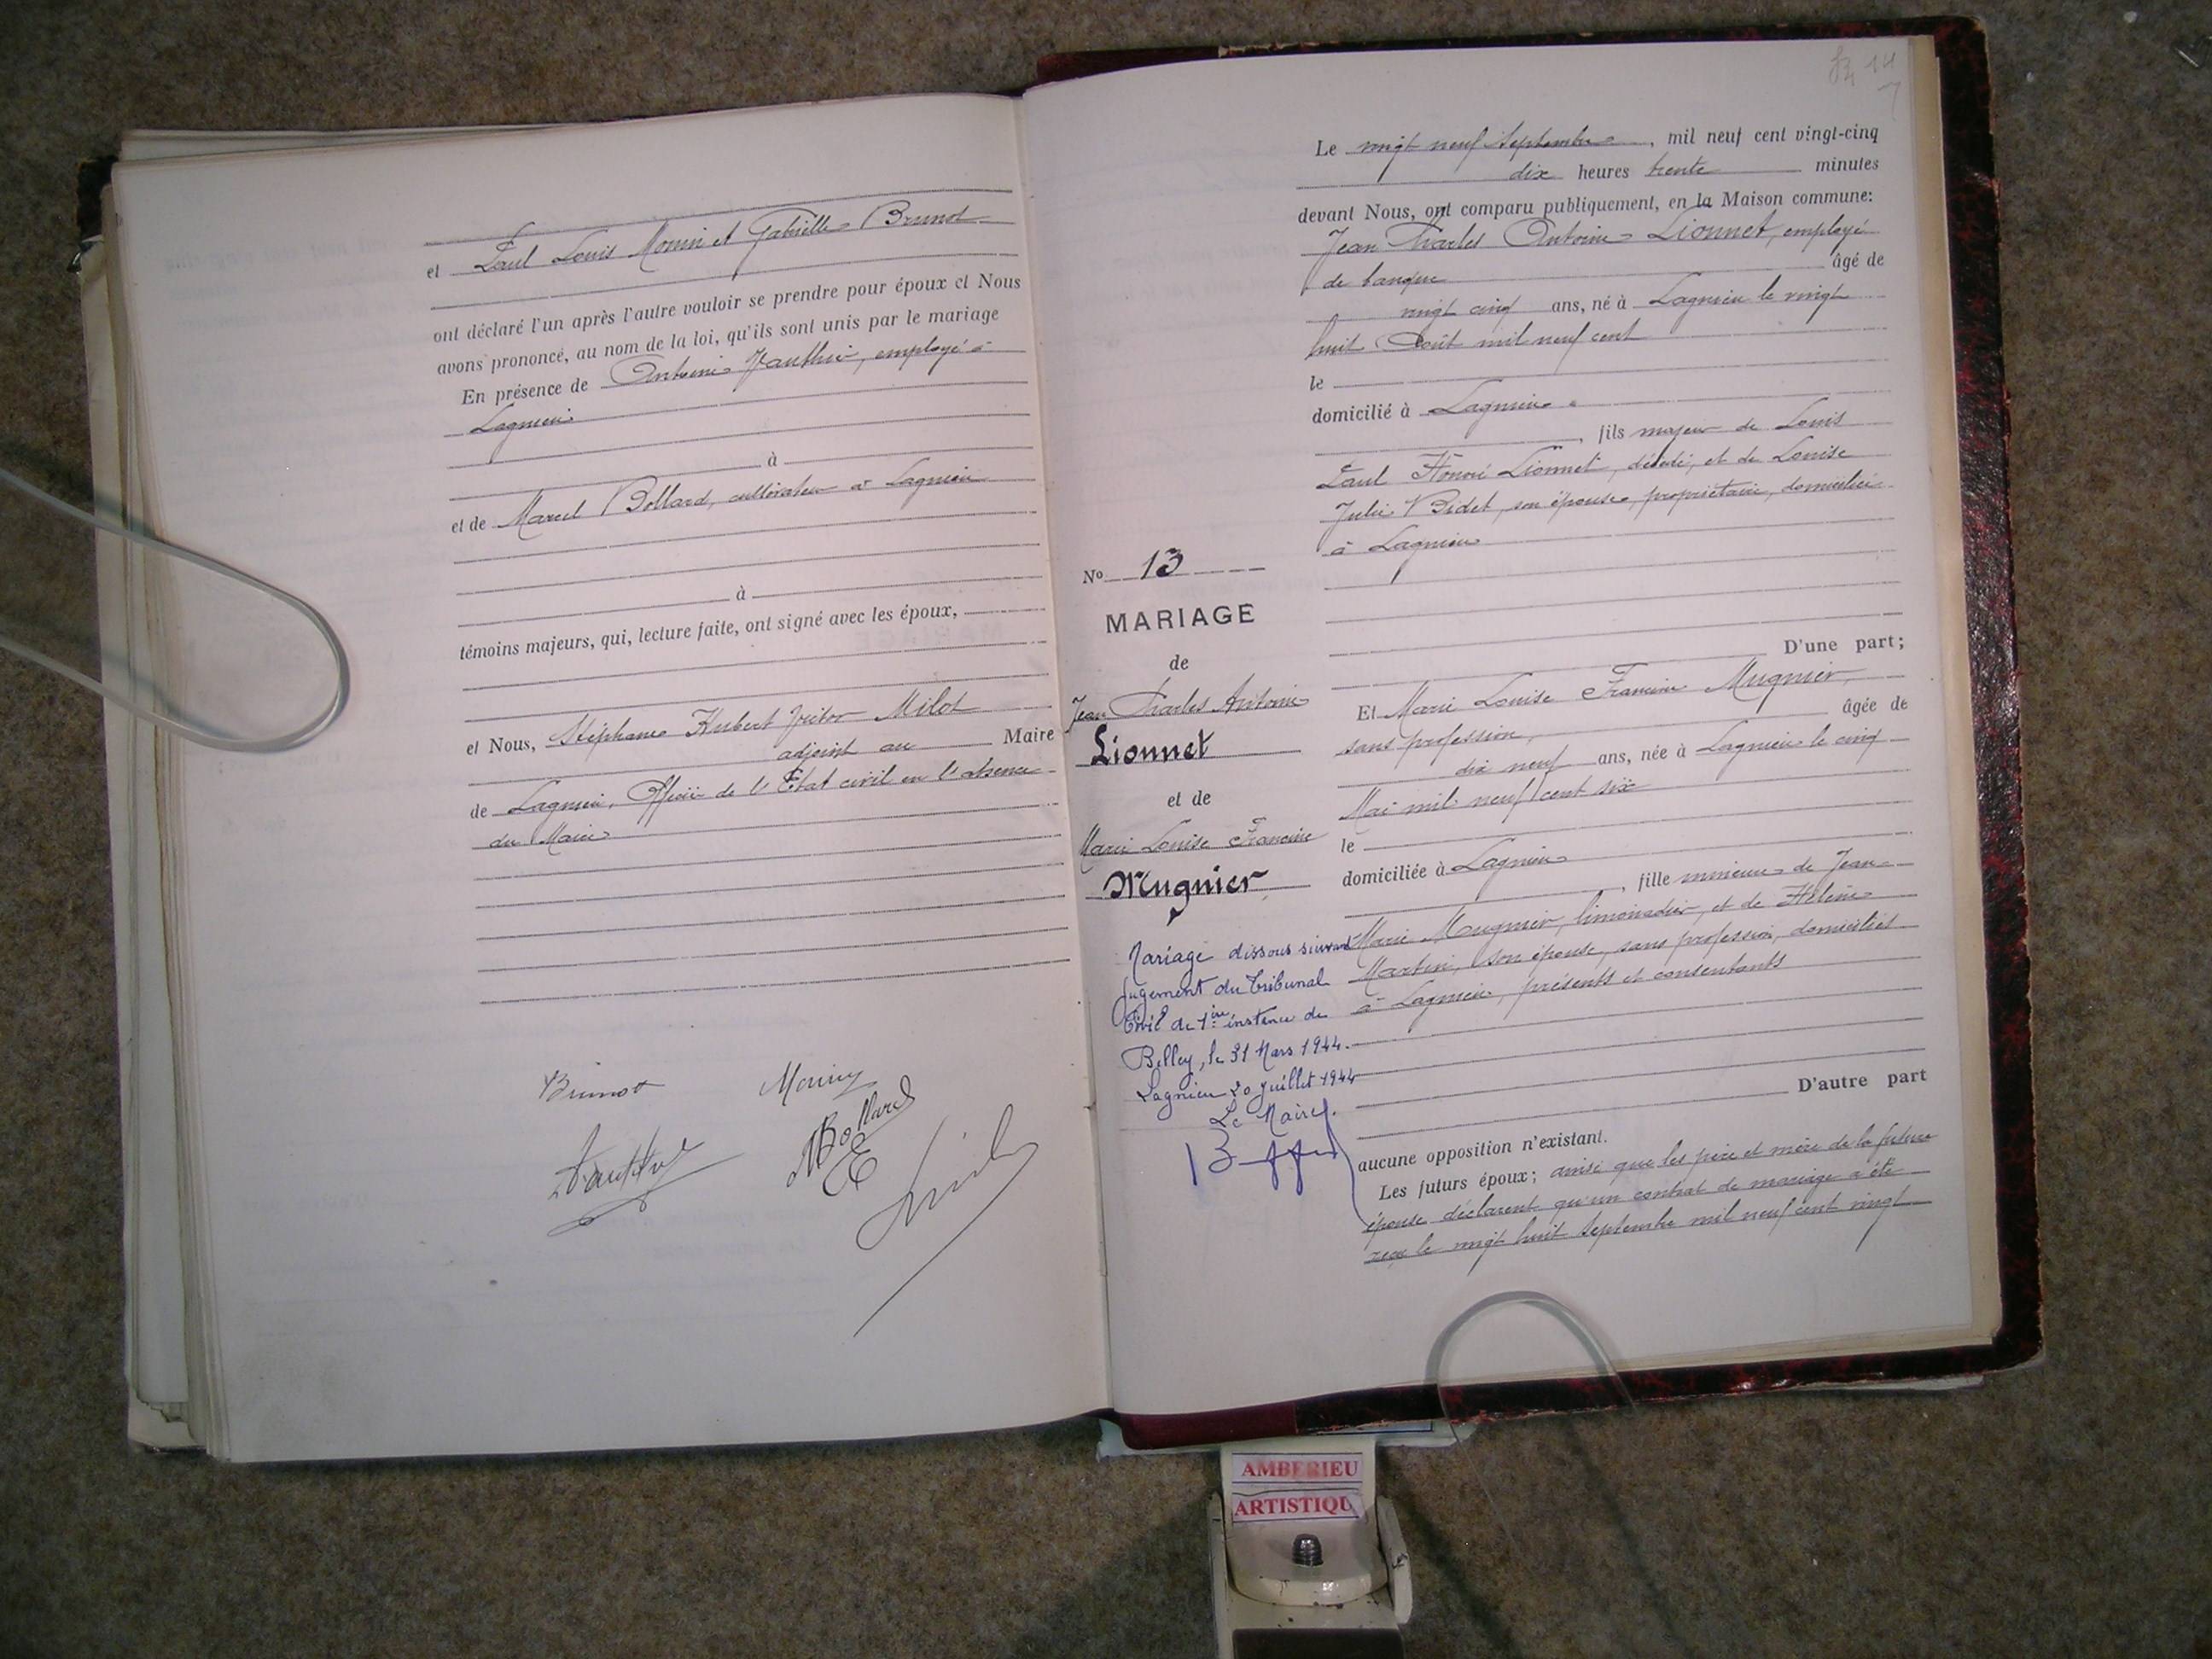 et Paul Louis Monin et Gabrielle Brunot
ont déclaré l'un après l'autre vouloir se prendre pour époux et Nous
avons prononcé, au nom de la loi, qu'ils sont unis par le mariage
En présence de Antoine Vauthier, employé à
Lagnieu
à
et de Marcel Bollard, cultivateur à Lagnieu
à
témoins majeurs, qui, lecture faite, ont signé avec les époux,
et Nous, Stéphane Hubert Victor Milot
adjoint au Maire
de Lagnieu, Officier de l'Etat civil en l'absence
du Maire
Brunot Monin
M Bollard
14
7
Le vingt neuf Septembre, mil neuf cent vingt-cinq
dix heures trente minutes
devant Nous, ont comparu publiquement, en la Maison commune:
Jean Charles Antoine Lionnet, employé
de banque âgé de
vingt cinq ans, né à Lagnieu le vingt
huit Août mil neuf cent
le
domicilié à Lagnieu
, fils majeur de Louis
Paul Honoré Lionnet, décédé, et de Louise
Julie Bidet, son épouse, propriétaire, domiciliée
à Lagnieu
D'une part;
Et Marie Louise Francine Mugnier,
sans profession, âgée de
dix neuf ans, née à Lagnieu le cinq
Mai mil neuf cent six
le
domiciliée à Lagnieu
, fille mineure de Jean
Marie Mugnier, limonadier, et de Hélène
Martin, son épouse, sans profession, domiciliés
à Lagnieu, présents et consentants
D'autre part
aucune opposition n'existant.
Les futurs époux; ainsi que les père et mère de la future
épouse déclarent qu'un contrat de mariage a été
reçu le vingt huit Septembre mil neuf cent vingt
No 13
MARIAGE
de
Jean Charles Antoine
Lionnet
et de
Marie Louise Francine
Mugnier
Mariage dissous suivant
jugement du Tribunal
Civil de 1ère instance de
Belley, le 31 Mars 1944.
Lagnieu 20 Juillet 1944
Le Maire.
AMBERIEU
ARTISTIQU